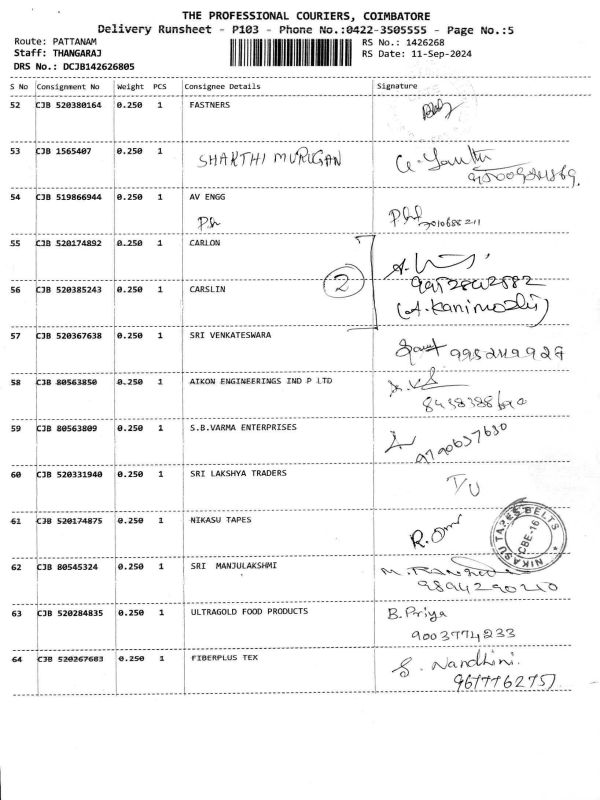 THE PROFESSIONAL COURIERS, COIMBATORE
Delivery Runsheet - P103 - Phone No.:0422-3505555 - Page No.:5
Route: PATTANAM RS No.: 1426268
Staff: THANGARAJ RS Date: 11-Sep-2024
DRS No.: DCJB142626805
S No Consignment No Weight PCS Consignee Details Signature
52 CJB 520380164 0.250 1 FASTNERS
53 CJB 1565407 0.250 1 SHAKTHI MURUGAN
54 CJB 519866944 0.250 1 AV ENGG
55 CJB 520174892 0.250 1 CARLON
2
56 CJB 520385243 0.250 1 CARSLIN 9952842882
(A.Kanimozhi)
57 CJB 520367638 0.250 1 SRI VENKATESWARA
58 CJB 80563850 0.250 1 AIKON ENGINEERINGS IND P LTD
59 CJB 80563809 0.250 1 S.B.VARMA ENTERPRISES
9790657630
60 CJB 520331940 0.250 1 SRI LAKSHYA TRADERS
61 CJB 520174875 0.250 1 NIKASU TAPES
NIKASU TAPES BELTS
CBE-16
62 CJB 80545324 0.250 1 SRI MANJULAKSHMI
9894290210
63 CJB 520284835 0.250 1 ULTRAGOLD FOOD PRODUCTS B.Priya
9003774233
64 CJB 520267683 0.250 1 FIBERPLUS TEX S. Nandhini.
9677762757